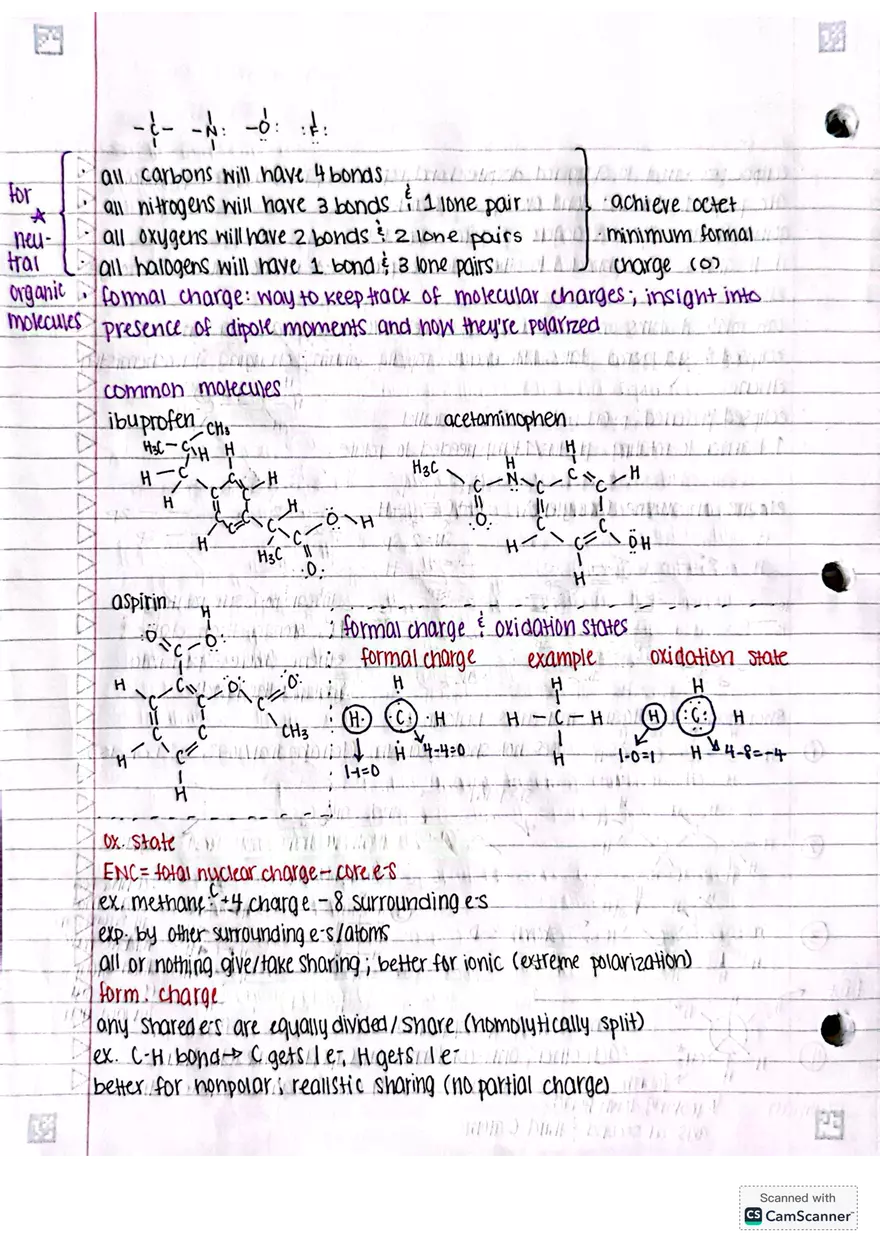 -C- -N: -O: :F:
for ★ neu-tral organic molecules
· all carbons will have 4 bonds
· all nitrogens will have 3 bonds & 1 lone pair
· all oxygens will have 2 bonds & 2 lone pairs
· all halogens will have 1 bond & 3 lone pairs
· achieve octet
· minimum formal
charge (0)
· formal charge: way to keep track of molecular charges; insight into
presence of dipole moments and how they're polarized
common molecules
ibuprofen
CH₃
H₃C - C H H
H - C C H
H C C
C C H
H C C O H
H₃C C
:O:
acetaminophen
H₃C H H
C N C C C H
:O: C C
H C ÖH
H
aspirin
H
:O C O:
H C C O: C O:
C C CH₃
H C C
H
formal charge & oxidation states
formal charge example oxidation state
H H H
H· ·C· ·H H - C - H H :C: H
H 4-4=0 H 1-0=1 H 4-8=-4
1-1=0
ox. state
ENC = total nuclear charge - core e-s
ex. methane: C +4 charge - 8 surrounding e-s
exp. by other surrounding e-s/atoms
all or nothing give/take sharing; better for ionic (extreme polarization)
form. charge
any shared e-s are equally divided/share (homolytically split)
ex. C-H bond → C gets 1 e-, H gets 1 e-
better for nonpolar; realistic sharing (no partial charge)
Scanned with
CS CamScanner